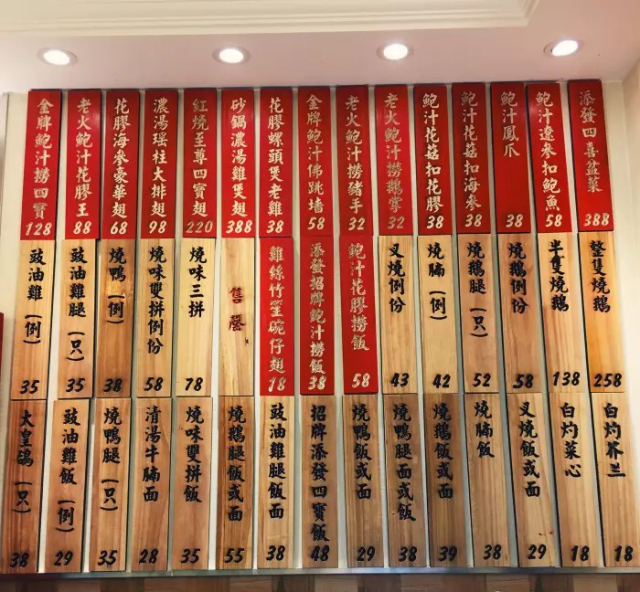 金牌鮑汁撈四寶 128
老火鮑汁花膠王 88
花膠海參豪華翅 68
濃湯瑤柱大排翅 98
紅燒至尊四寶翅 220
砂鍋濃湯雞煲翅 388
花膠螺頭煲老雞 38
金牌鮑汁佛跳墻 58
老火鮑汁撈豬手 32
老火鮑汁撈鵝掌 32
鮑汁花菇扣花膠 38
鮑汁花菇扣海參 38
鮑汁鳳爪 38
鮑汁遼參扣鮑魚 58
添發四喜盆菜 388
豉油雞（例） 35
豉油雞腿（只） 35
燒鴨（例） 38
燒味雙拼例份 58
燒味三拼 78
售罄
雞絲竹笙碗仔翅 18
添發招牌鮑汁撈飯 38
鮑汁花膠撈飯 58
叉燒例份 43
燒腩（例） 42
燒鵝腿（只） 52
燒鵝例份 58
半隻燒鵝 138
整隻燒鵝 258
大皇鴿（只） 38
豉油雞飯（例） 29
燒鴨腿（只） 35
清湯牛腩面 28
燒味雙拼飯 35
燒鵝腿飯或面 55
豉油雞腿飯面 38
招牌添發四寶飯 48
燒鴨飯或面 29
燒鴨腿面或飯 38
燒鵝飯或面 38
燒腩飯 38
叉燒飯或面 29
白灼菜心 18
白灼芥兰 18